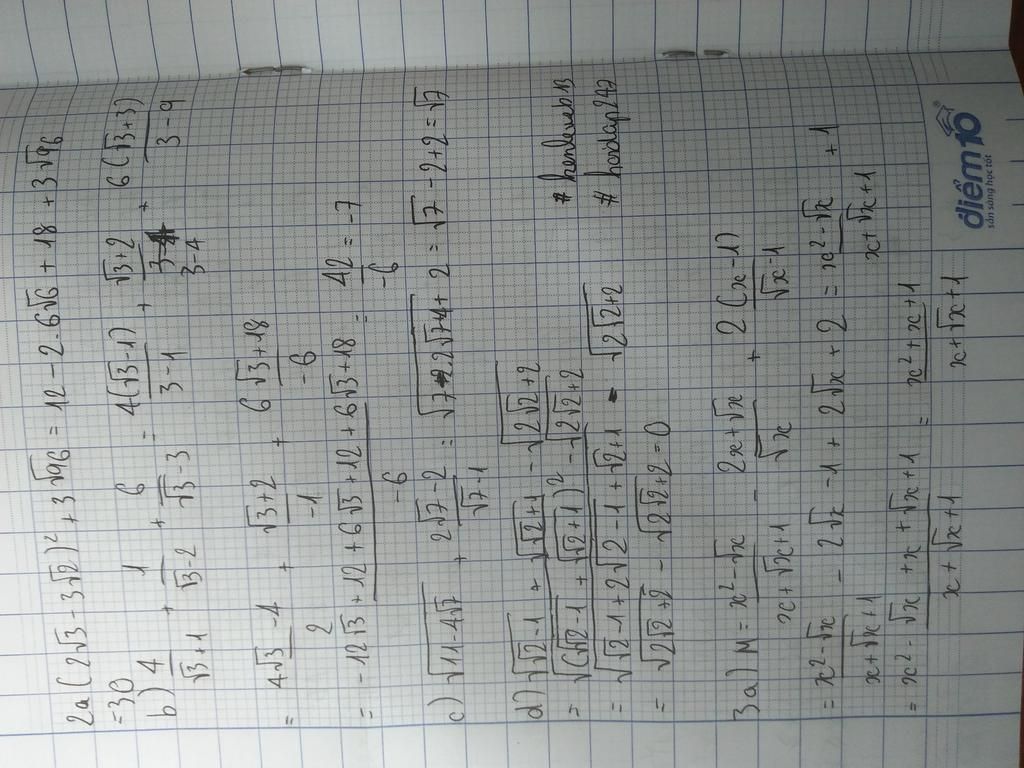 2a (2√3 - 3√2)² + 3√96 = 12 - 2.6√6 + 18 + 3√96
= 30
b) 4/(√3+1) + 1/(√3-2) + 6/(√3-3) = 4(√3-1)/(3-1) + (√3+2)/(3-4) + 6(√3+3)/(3-9)
= (4√3-4)/2 + (√3+2)/-1 + (6√3+18)/-6
= (-12√3+12+6√3+12+6√3+18)/-6 = 42/-6 = -7
c) √(11-4√7) + (2√7-2)/(√7-1) = √(7-2.2√7+4) + 2 = √7 - 2 + 2 = √7
d) √(√2-1) + √(√2+1) - √(2√2+2)
= √(√(√2-1) + √(√2+1))² - √(2√2+2)
= √(√2-1+2√2-1+√2+1) - √(2√2+2)
= √(2√2+2) - √(2√2+2) = 0
# henlenweb13
# hoidap247
3a) M = (x²-√x)/(x+√x+1) - (2x+√x)/√x + 2(x-1)/(√x-1)
= (x²-√x)/(x+√x+1) - 2√x - 1 + 2√x + 2 = (x²-√x)/(x+√x+1) + 1
= (x²-√x+x+√x+1)/(x+√x+1) = (x²+x+1)/(x+√x+1)
điểm10
sẵn sàng học tốt